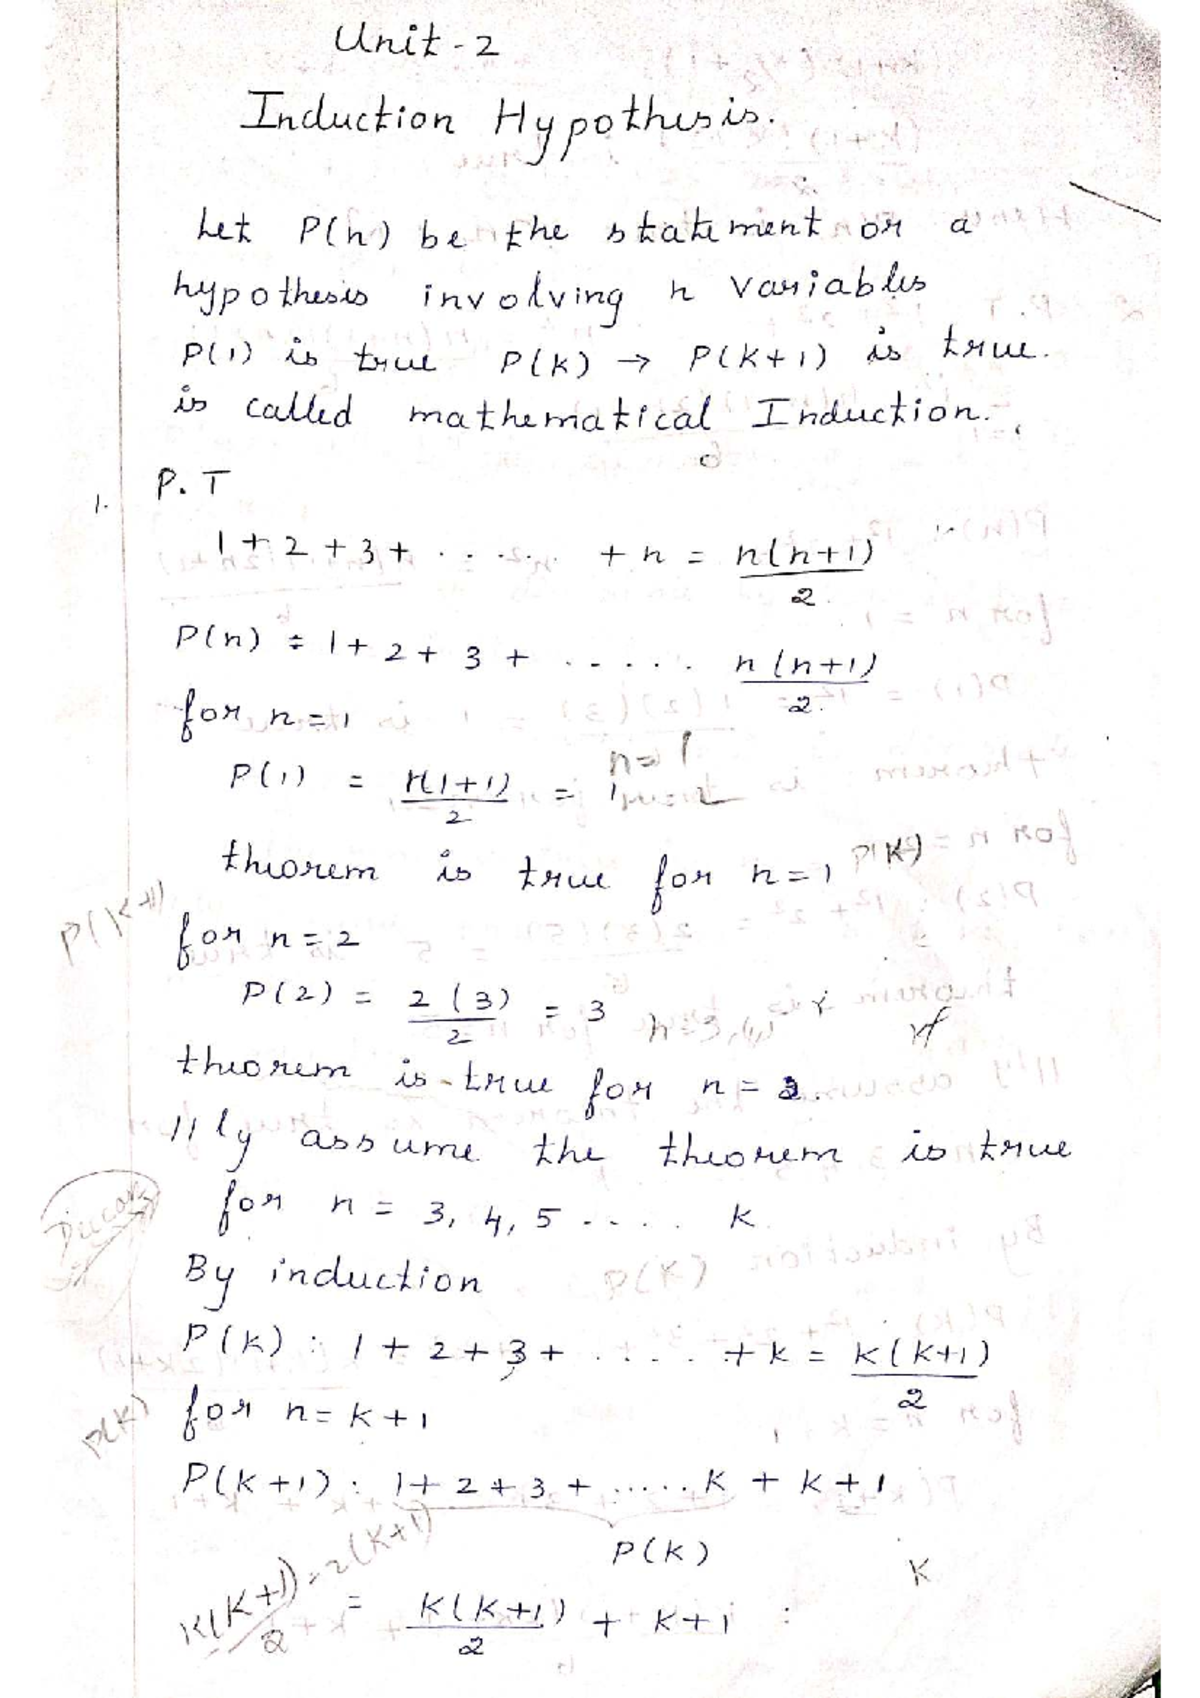 Unit-2
Induction Hypothesis.
Let P(n) be the statement or a
hypothesis involving n variables
P(1) is true P(k) → P(k+1) is true.
is called mathematical Induction.
1. P.T
1+2+3+ ....... +n = n(n+1)/2.
P(n) = 1+2+3+ ...... n(n+1)/2.
for n=1
n=1
P(1) = 1(1+1)/2 = 1
theorem is true for n=1 P(K)
P(K+1)
for n=2
P(2) = 2(3)/2 = 3
theorem is true for n=2.
llly assume the theorem is true
for n = 3, 4, 5 ..... k
By induction
P(k) : 1+2+3+ ..... +k = k(k+1)/2
P(K)
for n=k+1
P(k+1) : 1+2+3+ ..... k + k+1
P(k)
K(K+1)/2 = 2(K+1)
K
= k(k+1)/2 + k+1 :